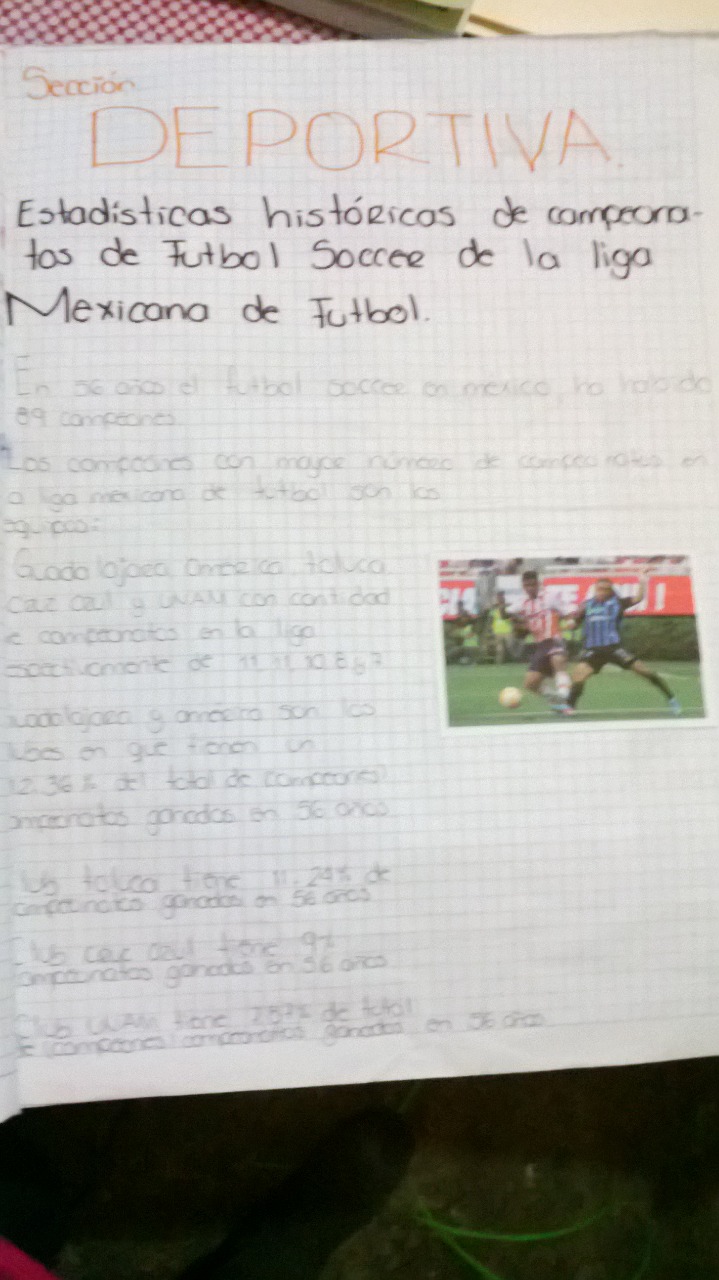 Sección
DEPORTIVA.
Estadísticas históricas de campeona-
tos de Futbol Soccer de la liga
Mexicana de Futbol.
En 56 años el futbol soccer en mexico, ha habido
89 campeones
Los campeones con mayor número de campeonatos en
a liga mexicana de futbol son los
equipos:
Guadalajara America toluca
caz azul y UNAM con cantidad
e campeonatos en la liga
espectivamente de 11 11 10 8 y 7
uadalajara y america son los
lubes en que tienen un
12.36% del total de campeones
ampeonatos ganados en 56 años
lub toluca tiene 11.24% de
ampeonatos ganados en 56 años
Club caz azul tiene 9%
ampeonatos ganados en 56 años
Club UNAM tiene de total
e campeones campeonatos ganados en 56 años